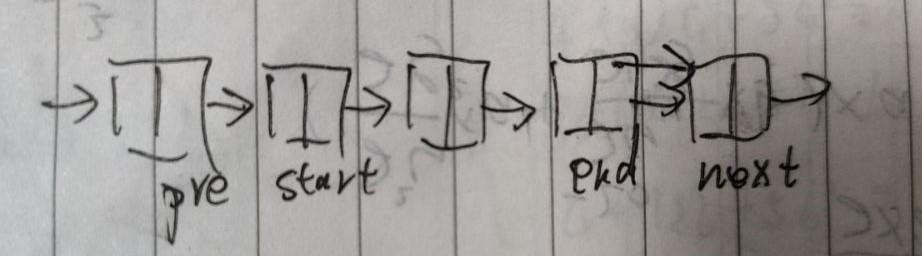 pre start end next